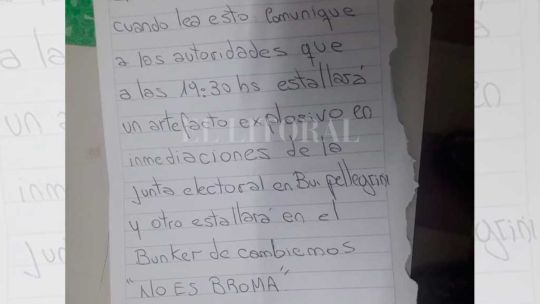 cuando lea esto Comunique
a los autoridades que
a las 19:30 hs estallará
un artefacto explosivo en
EL LITORAL
inmediaciones de la
Junta electoral en Bv. pellegrini
y otro estallará en el
Bunker de cambiemos
"NO ES BROMA"